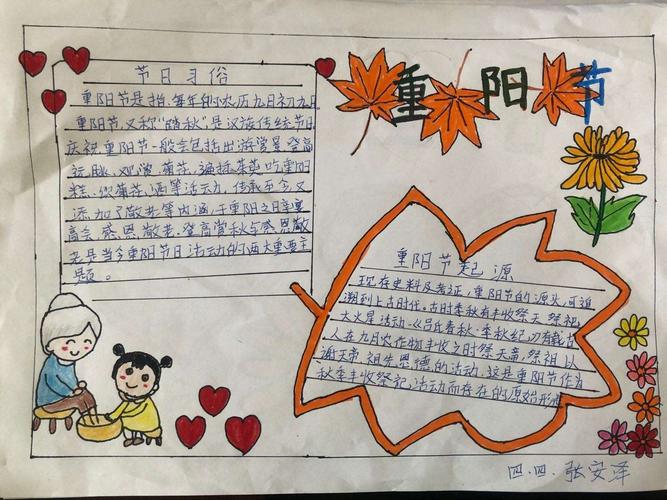 重阳节
节日习俗
重阳节是指每年的农历九月初九
重阳节,又称"踏秋",是汉族传统节日
庆祝重阳节一般会包括出游赏景、登高
远眺、观赏菊花、遍插茱萸、吃重阳
糕、饮菊花酒等活动,传承至今又
添加了敬老等内涵,于重阳之日享宴
高会,感恩敬老。登高赏秋与感恩敬
老是当今重阳节日活动的两大重要主
题。
重阳节起源
现存史料及考证,重阳节的源头,可追
溯到上古时代。古时季秋有丰收祭天、祭祖
大火星活动。《吕氏春秋·季秋纪》有载古
人在九月农作物丰收之时祭天帝、祭祖,以
谢天帝、祖先恩德的活动。这是重阳节作为
秋季丰收祭祀活动而存在的原始形式
四.四. 张安泽